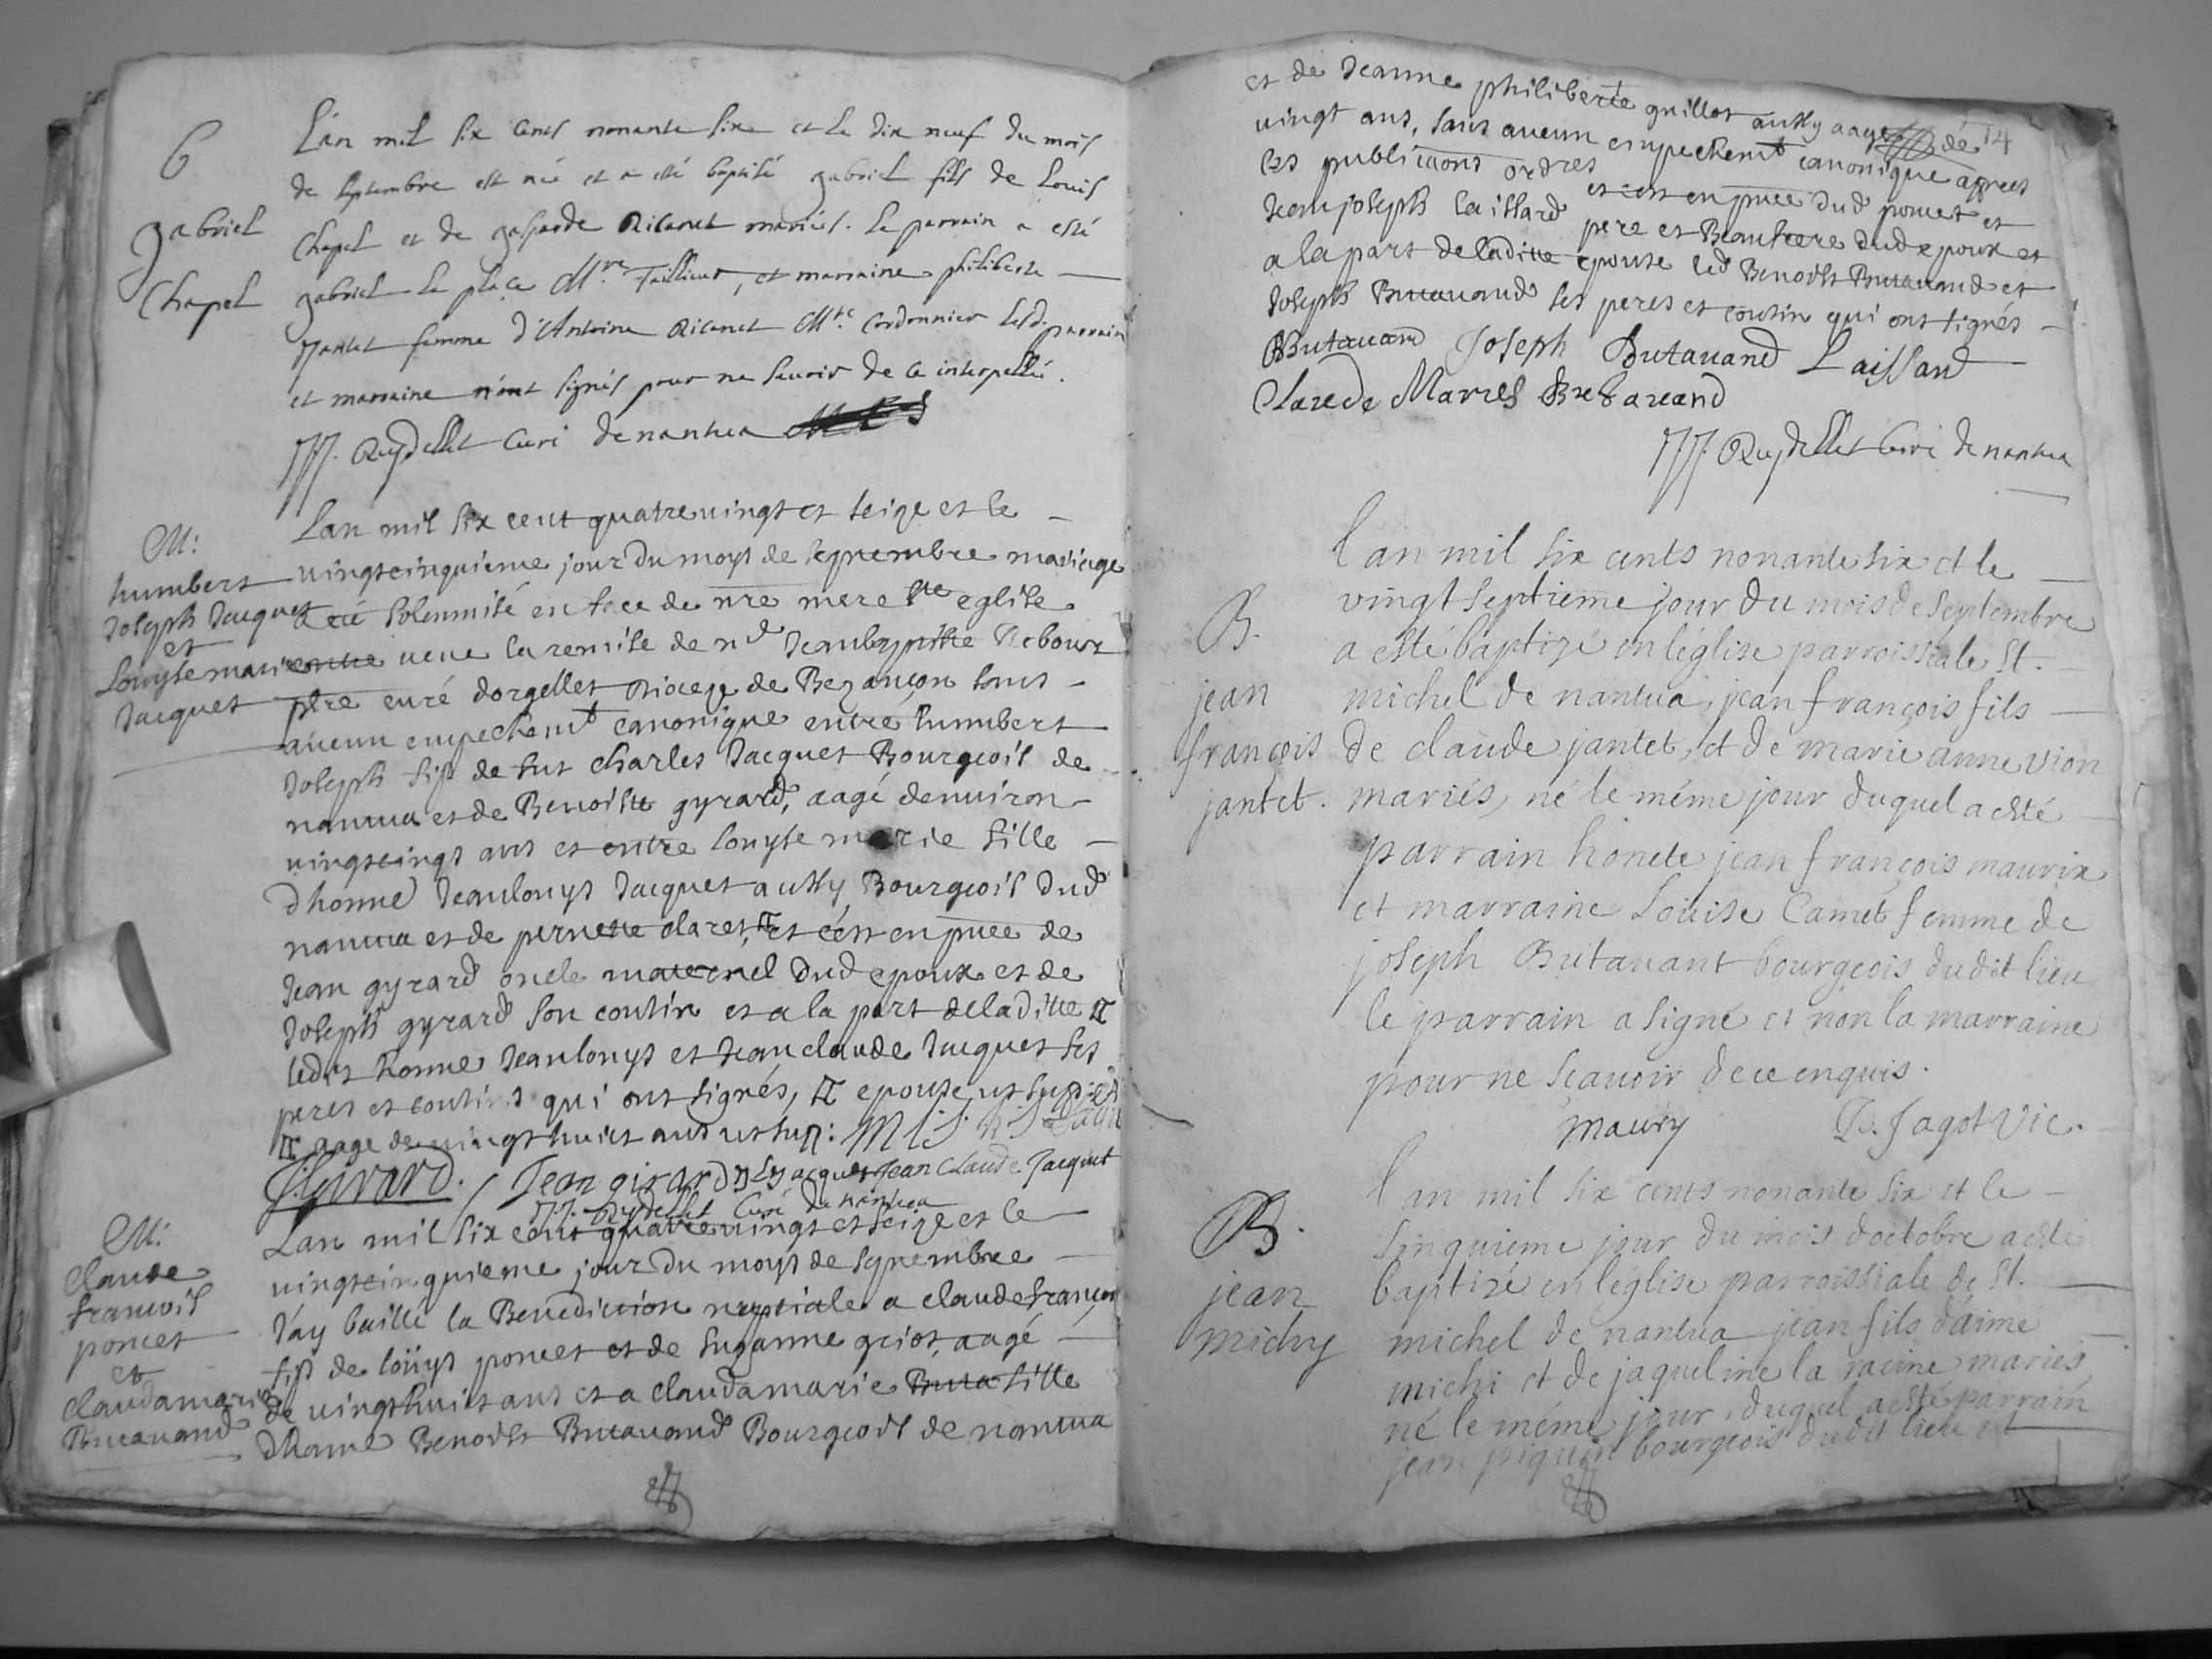 B
gabriel
Chapel
L'an mil six cens nonante sixe et le dix neuf du mois
de septembre est né et a esté baptisé gabriel fils de Louis
Chapel et de gasparde Ricanet mariés. Le parrain a esté
gabriel la place Mre Tailleur, et marraine philiberte
Jantet femme d'Antoine Ricanet Mre Cordonnier lesd. parrain
et marraine n'ont signés pour ne sauoir de ce interpellé.
JJ. Reydellet Curé de nantua
M:
humbert
Joseph Jacquet
et
Louyse marie
Jacquet
Lan mil six cent quatreuingt et seize et le
uingtcinquieme jour du moys de septembre mariage
a eté solemnité en face de nre mere ste eglise
ueue la remise de rd Jeanbaptiste Rebour
ptre curé dorgellet diocese de Bezançon sans
aucun empechemt canonique entre humbert
Joseph fils de fut charles Jacquet Bourgeois de
nantua et de Benoiste gyrard, aagé denuiron
uingtcingt ans et entre Louyse marie fille
dhonne Jeanlouys Jacquet aussy Bourgeois dud
nantua et de pernette claret, et cest en pnce de
Jean gyrard oncle maternel dud epoux et de
Joseph gyrard son coutin et a la part deladitte
ledit honne Jeanlouys et Jean claude Jacquet ses
peres et coutins qui ont signés, epouse ut supr
aage de uingt huict ans ut sup:
JGirard. Jean girard JLJacquet Jean Claude Jacquet
JJ. Reydellet Curé de nantua
M:
Claude
francois
poncet
et
claudamarie
Butauand
Lan mil six cent quatreuingt et seize et le
uingtcinquieme jour du moys de septembre
J'ay baillé la Benediction nuptiale a claudefrancois
fils de loüys poncet et de Suzanne griot, aagé
de uingthuict ans et a claudamarie Buta fille
dhonne Benoist Butauand Bourgeois de nantua
14
et de Jeanne philiberte guillot aussy aagée de
uingt ans, sans aucun empechemt canonique apres
les publications ordres et cest en pnce dud poncet et
Jean joseph laissard pere et Beaufrere dud epoux et
a la part deladitte epouse led Benoist Butauand et
Joseph Butauand ses peres et coutin qui ont signés
BButauand Joseph Butauand Laissard
Claude Marres
JJ. Reydellet Curé de nantua
B.
jean
françois
jantet.
l'an mil six cents nonante six et le
vingt septieme jour du mois de septembre
a esté baptizé en l'église parroissiale St.
michel de nantua, jean françois fils
de claude jantet, et de marie anne vion
mariés, né le même jour duquel a esté
parrain honete jean françois maurix
et marraine Louise Camet femme de
joseph Butauant bourgeois dudit lieu
le parrain a signé et non la marraine
pour ne sçauoir de ce enquis.
Maury
D. Jagot Vic.
B.
jean
michy
l'an mil six cents nonante six et le
sinquieme jour du mois d'octobre a esté
baptizé en l'église parroissiale de St.
michel de nantua jean fils d'aimé
michi et de jaqueline la racine mariés
né le même jour, duquel a esté parrain
jean piquin bourgeois dudit lieu et